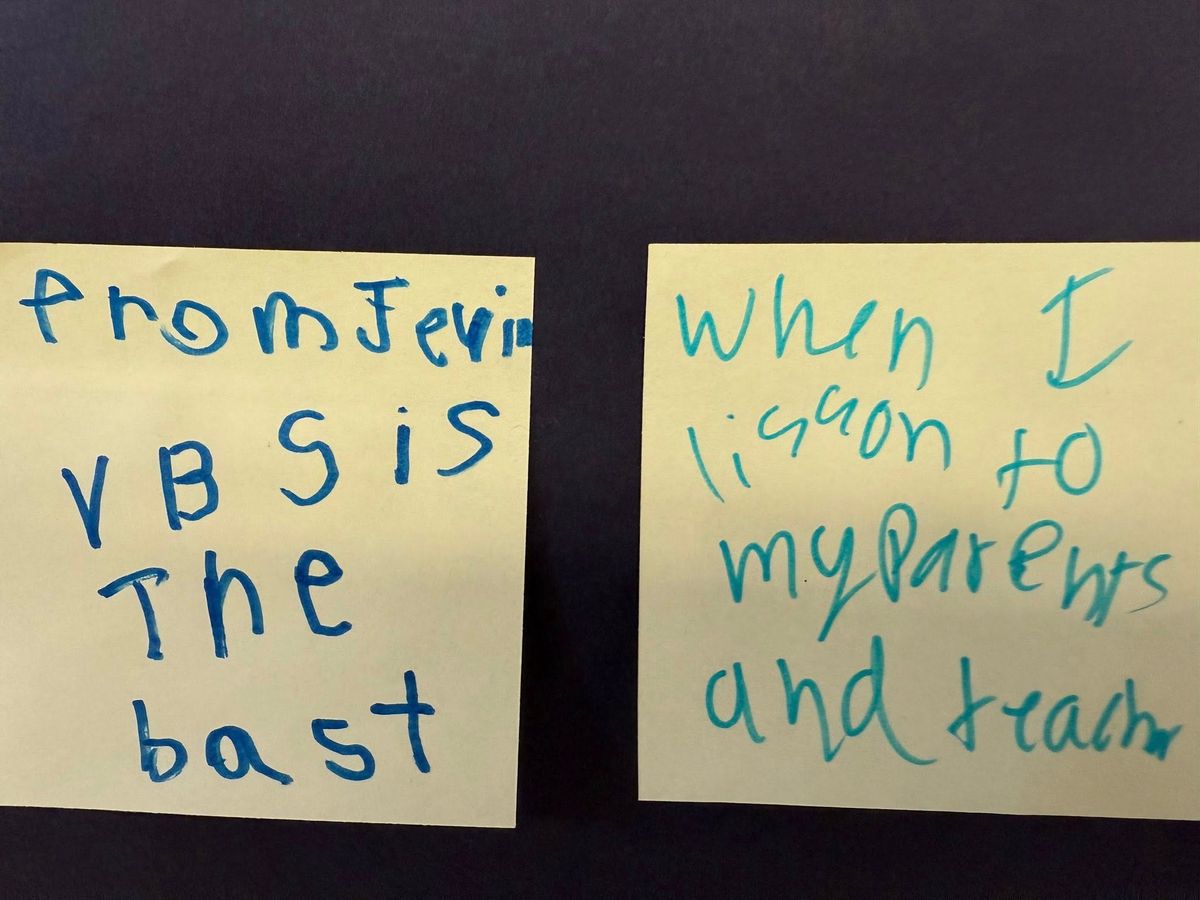 from Jevin
VBS is
The
bast
when I
lisson to
my parents
and teacher